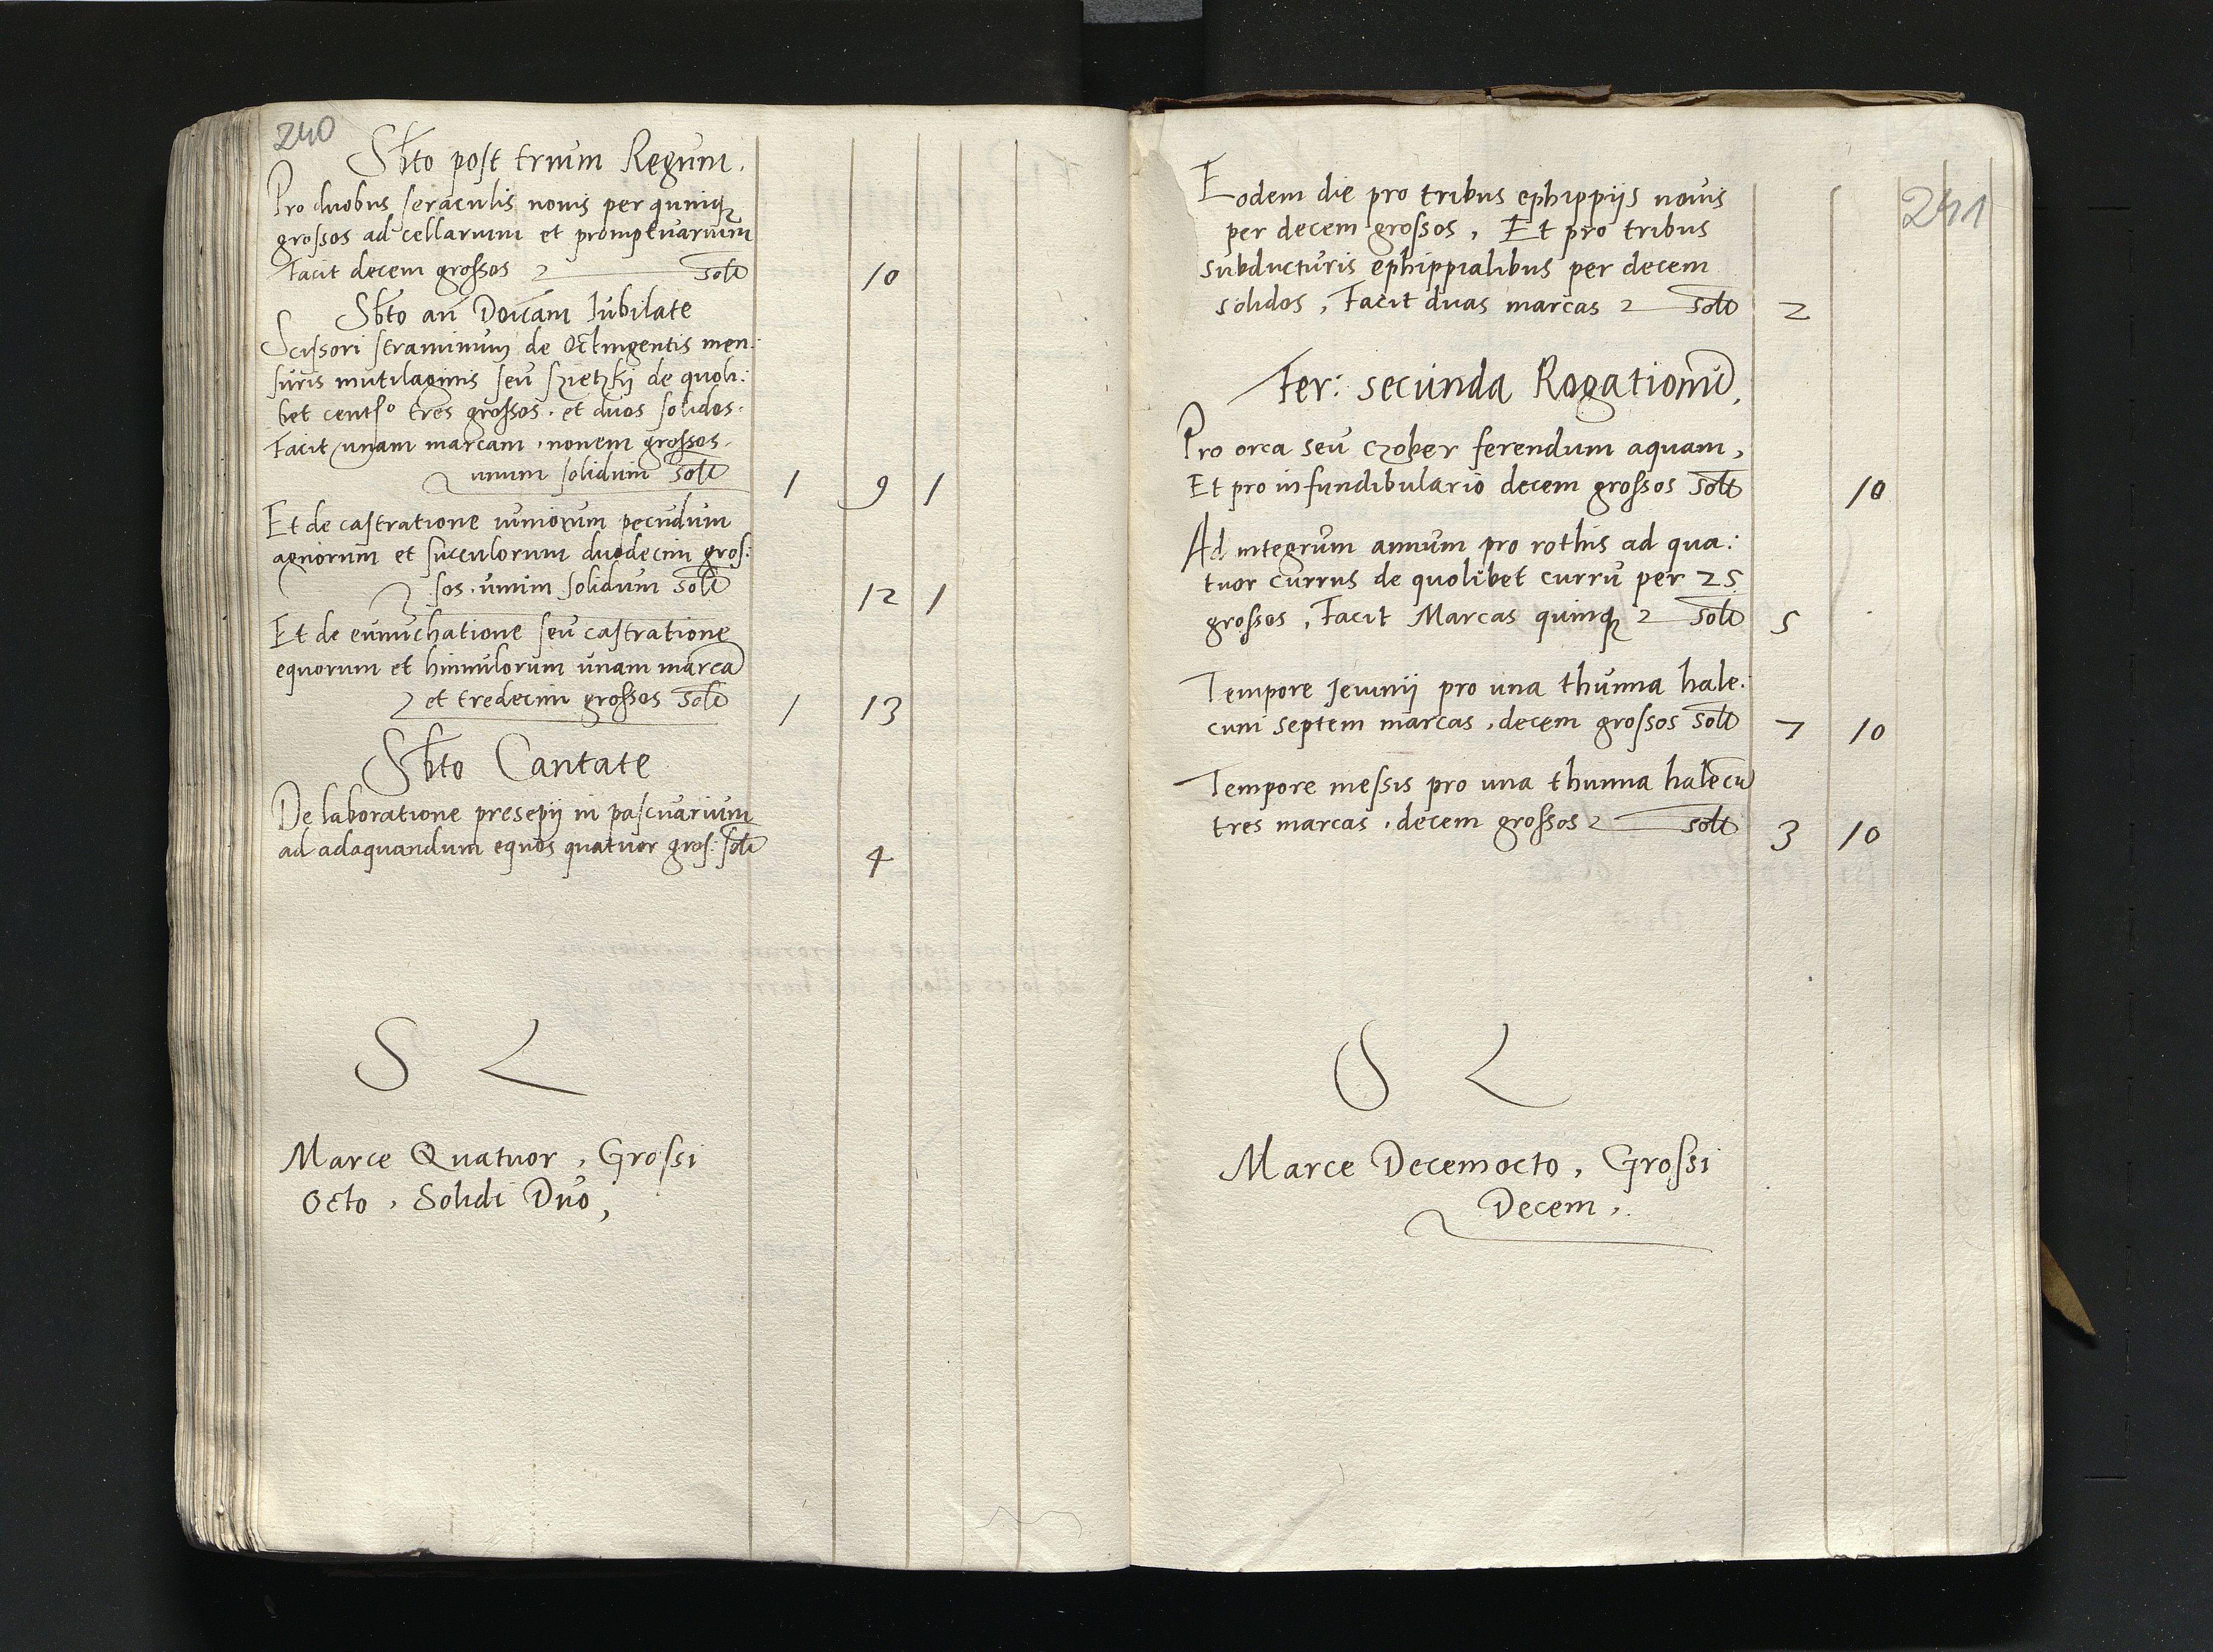 240
Sbto post trium Regum.
Pro duobus seraculis novis per quinq
grossos ad cellarium et promptuarium
Facit decem grossos solt 10
Sbto an Doicam Iubilate
Scissori straminum de Octingentis men:
suris mutilaginis seu szietzkij de quoli:
bet centso tres grossos. et duos solidos.
Facit unam marcam. novem grossos.
unum solidum solt 1 9 1
Et de castratione iuniorum pecudum
agnorum et succulorum duodecim gros:
sos. unum solidum solt 12 1
Et de eunuchatione seu castratione
equorum et hinnulorum unam marca
et tredecim grossos solt 1 13
Sbto Cantate
De laboratione presepij in pascuarium
ad adaquandum equos quatuor gros: solt 4
S L
Marce Quatuor, Grossi
Octo, Solidi Duo,
241
Eodem die pro tribus ephippijs novis
per decem grossos, Et pro tribus
subducturis ephippialibus per decem
solidos, Facit duas marcas solt 2
Fer: secunda Rogationu,
Pro orca seu czober ferendum aquam,
Et pro infundibulario decem grossos solt 10
Ad integrum annum pro rothis ad qua:
tuor currus de quolibet curru per 25
grossos, Facit Marcas quinq solt 5
Tempore Jeiunij pro una thunna hale:
cum septem marcas, decem grossos solt 7 10
Tempore messis pro una thunna halecu
tres marcas, decem grossos solt 3 10
S L
Marce Decemocto, Grossi
Decem,